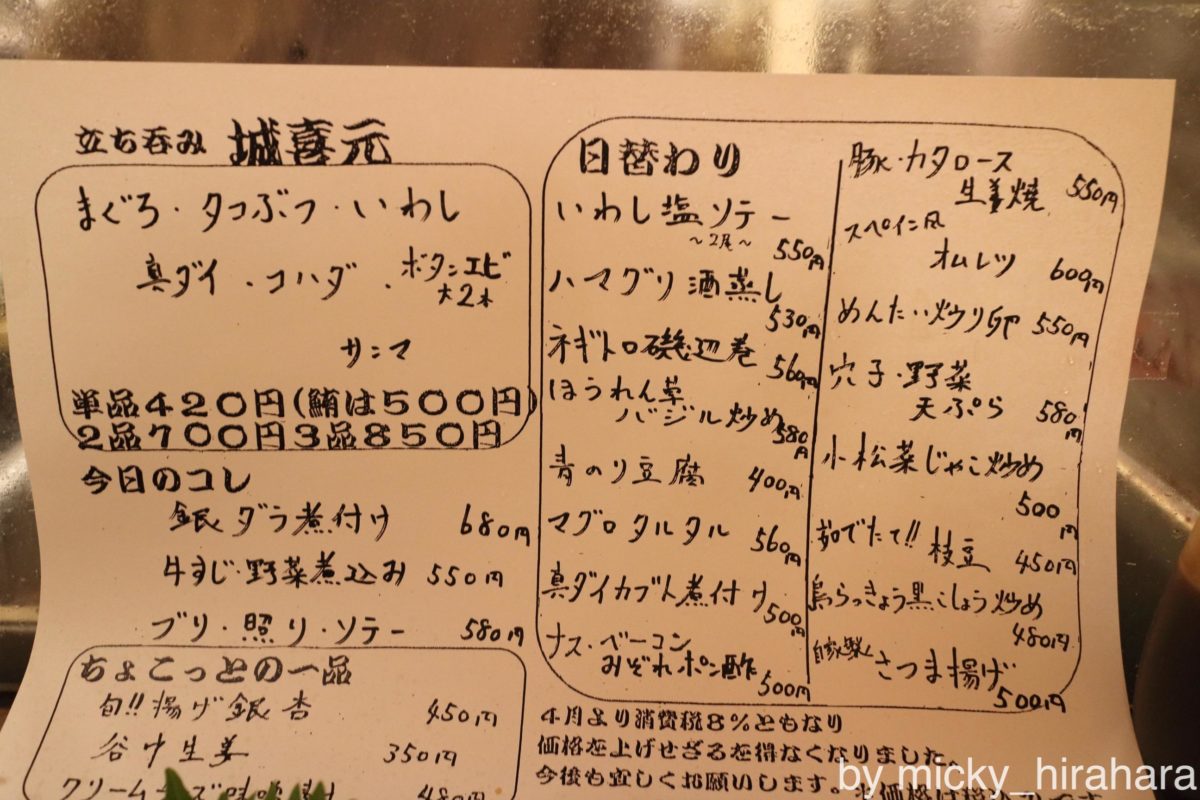 立ち呑み 城喜元
まぐろ・タコぶつ・いわし
真ダイ・コハダ・ボタンエビ
大2本
サンマ
単品420円(鮪は500円)
2品700円3品850円
今日のコレ
銀ダラ煮付け 680円
牛すじ・野菜煮込み 550円
ブリ・照り・ソテー 580円
ちょこっとの一品
旬!!揚げ銀杏 450円
谷中生姜 350円
クリームチーズ味噌漬け 480円
日替わり
いわし塩ソテー
~2尾~
550円
ハマグリ酒蒸し
530円
ネギトロ磯辺巻 560円
ほうれん草
バジル炒め 580円
青のり豆腐 400円
マグロタルタル 560円
真ダイカブト煮付け
500円
ナス・ベーコン
みぞれポン酢 500円
豚・カタロース
生姜焼 550円
スペイン風
オムレツ 600円
めんたい炒り卵 550円
穴子・野菜
天ぷら 580円
小松菜じゃこ炒め
500円
茹でたて!! 枝豆 450円
島らっきょう黒こしょう炒め
480円
自家製 さつま揚げ
500円
4月より消費税8%ともなり
価格を上げせざるを得なくなりました。
今後も宜しくお願いします。
by micky_hirahara